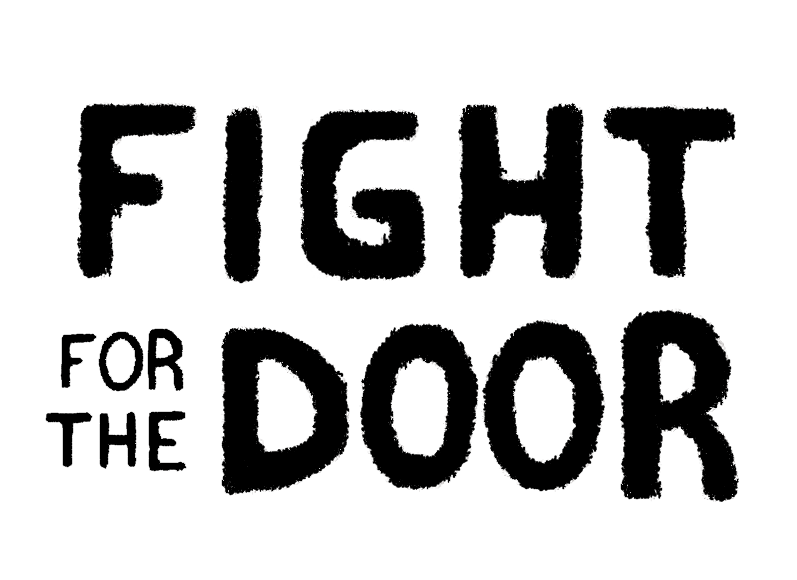 FIGHT
FOR
THE
DOOR